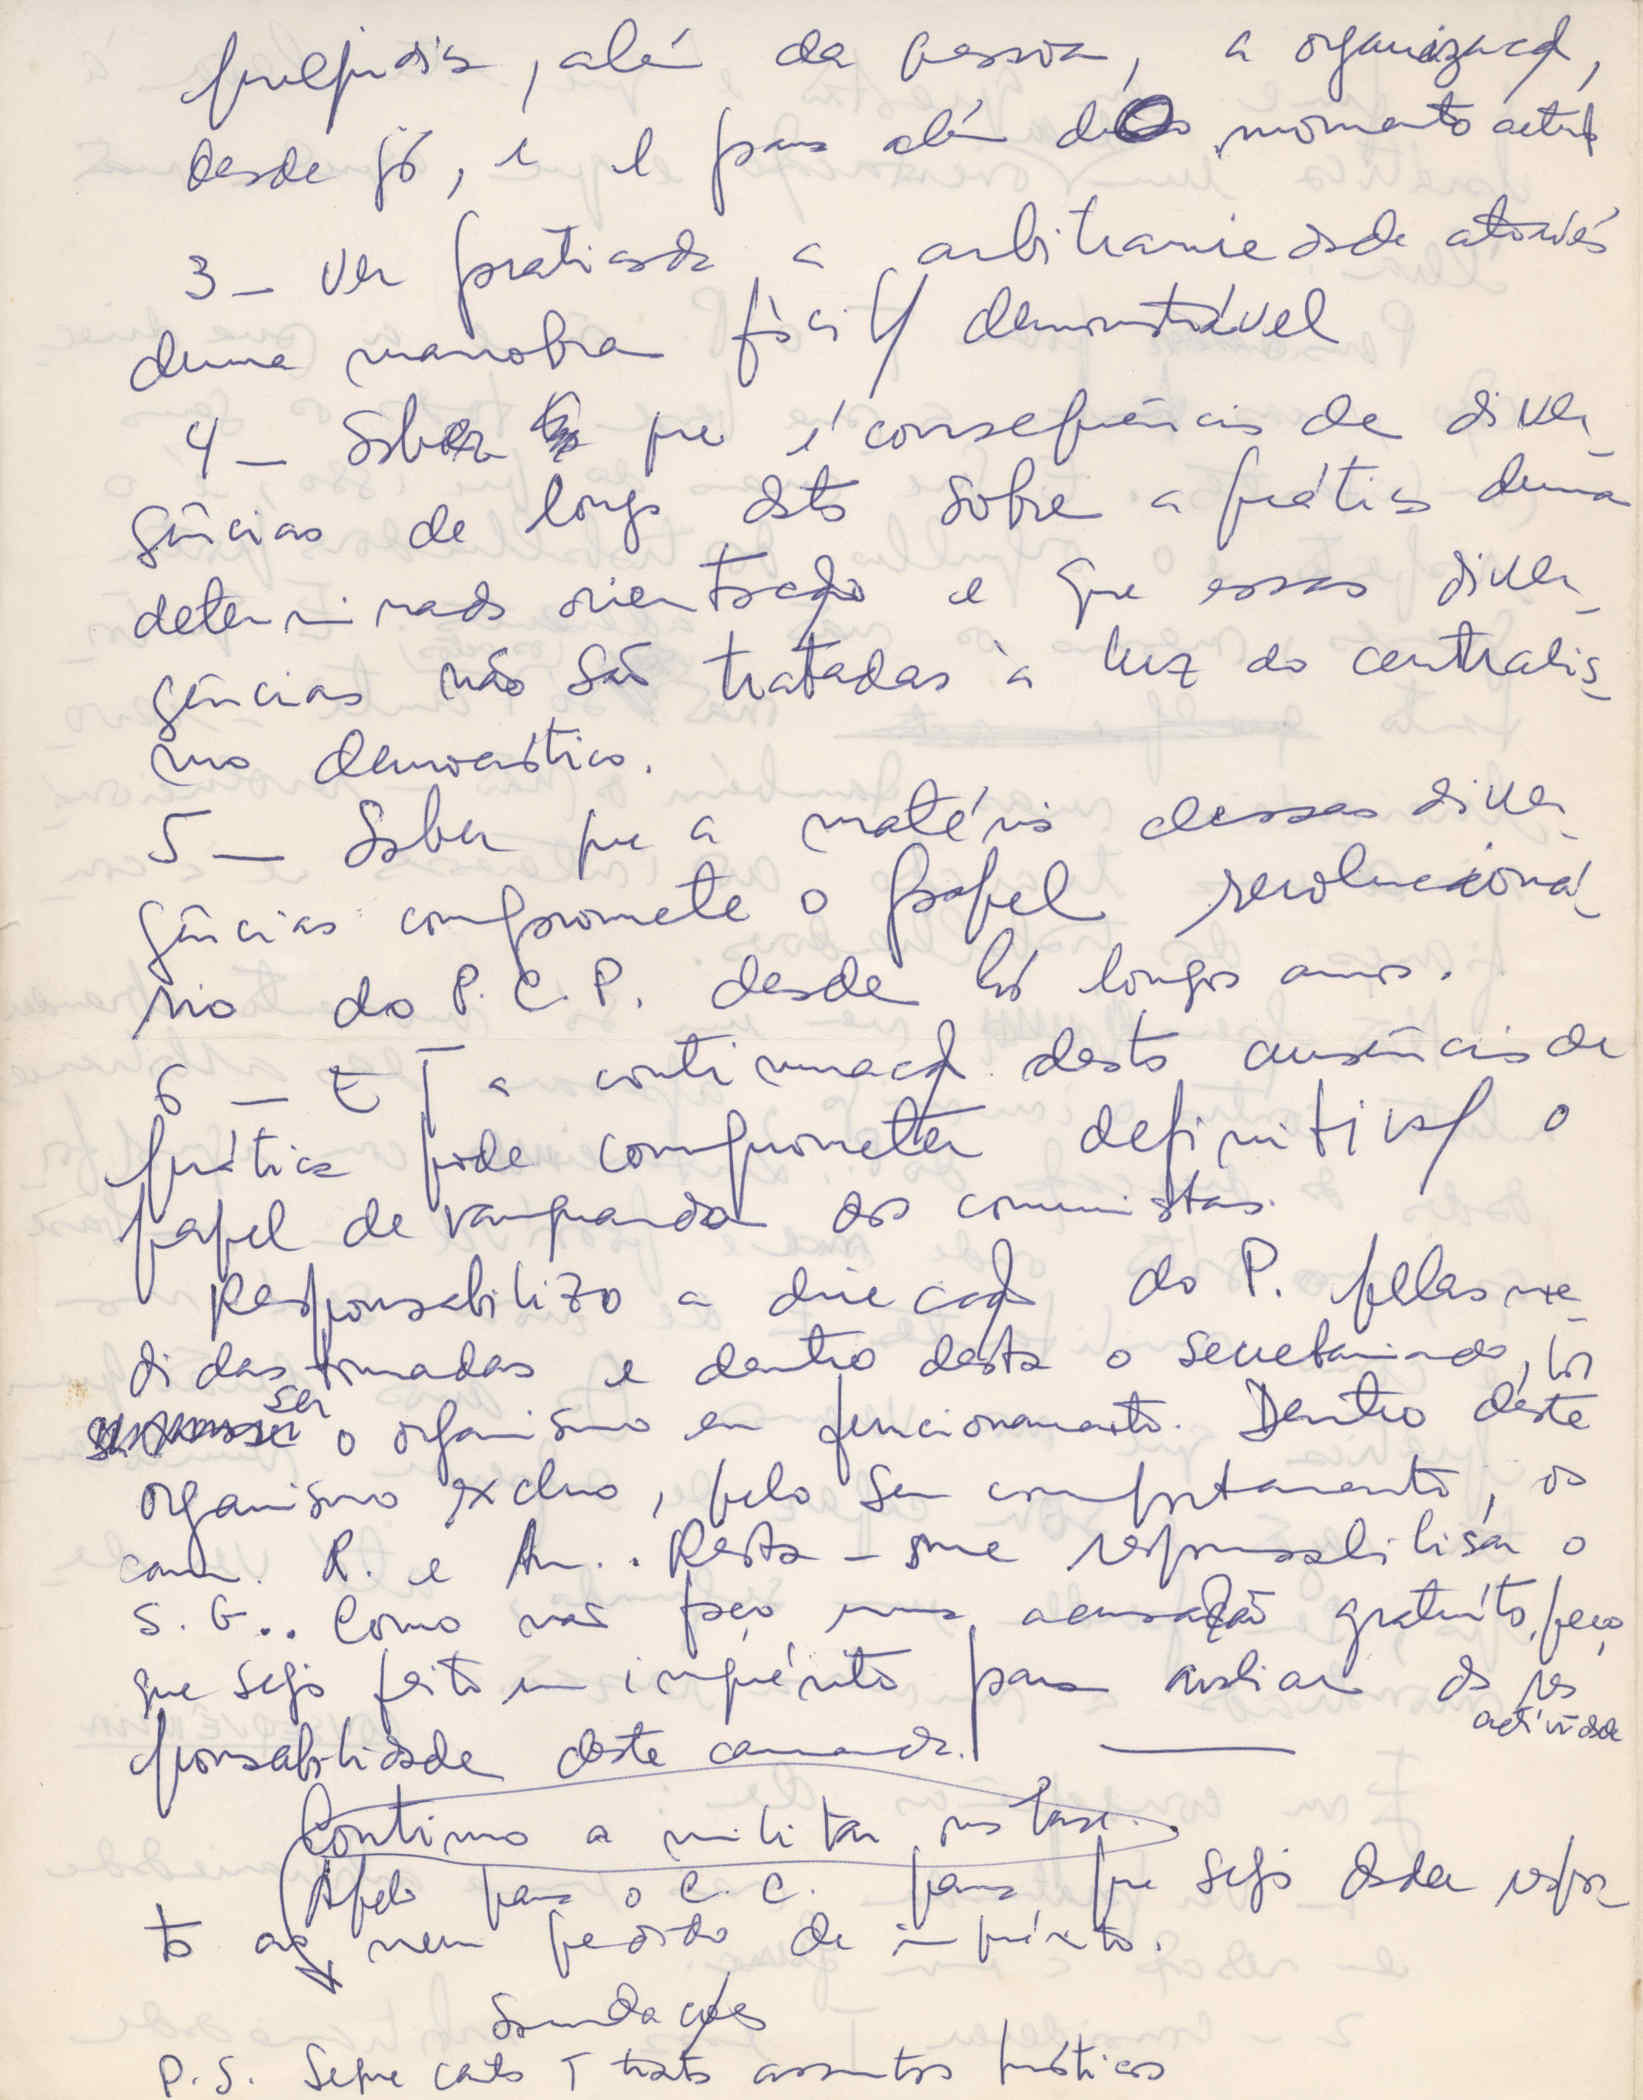 prejudica, além da pessoa, a organizaçã,
desde já, e e para além do momento actual
3 – Ver praticada a arbitrariedade através
duma manobra fàcil/ demonstrável
4 – Saber que é consequência de diver_
gências de longa data sobre a prática duma
determinada orientação e que essas diver_
gências não são tratadas à luz do centralis_
mo democrático.
5 – Saber que a matéria dessas diver_
gências compromete o papel revolucioná_
rio do P.C.P. desde há longos anos.
6 – E q a continuaçã desta ausência de
prática pode comprometer definitiva/ o
papel de vanguarda dos comunistas.
Responsabilizo a direcçã do P. pelas me_
didas tomadas e dentro desta o secretariado, por
ser o organismo em funcionamento. Dentro deste
organismo excluo, pelo seu comportamento, os
cam. R. e Am.. Resta-me responsabilisar o
S.G.. Como não faço uma acusação gratuita, peço
que seja feito um inquérito para avaliar da res
actividade
ponsabilidade deste camarada.
Continuo a militar na base.
Apelo para o C.C. para que seja dada respos_
ta ao meu pedido de inquérito.
Saudações
P.S. Segue carta q trata assuntos práticos